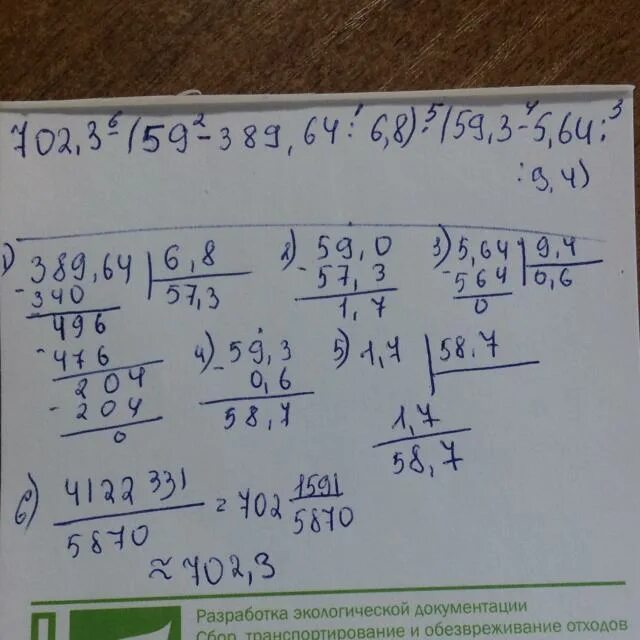 702,3 - (59 - 389,64 : 6,8) : (59,3 - 5,64 :
6 2 1 5 4 3
: 9,4)
1) 389,64 | 6,8
- 340 57,3
496
- 476
204
- 204
0
2) 59,0
- 57,3
1,7
3) 5,64 | 9,4
- 564 0,6
0
4) 59,3
- 0,6
58,7
5) 1,7 | 58,7
1,7
58,7
6) 4122331
5870
= 702 1591
5870
≈ 702,3
Разработка экологической документации
Сбор, транспортирование и обезвреживание отходов